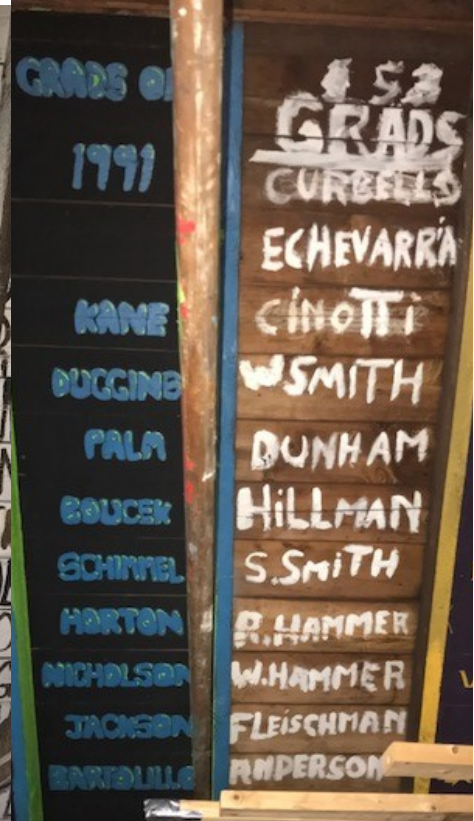 GRADS OF
1991
KANE
DUGGINS
PALM
BOUCEK
SCHIMMEL
HORTON
NICHOLSON
JACKSON
BARTOLILLO
GRADS
CURBELLO
ECHEVARRÍA
CINOTTI
W SMITH
DUNHAM
HiLLMAN
S.SMiTH
R.HAMMER
W.HAMMER
FLEiSCHMAN
ANDERSON